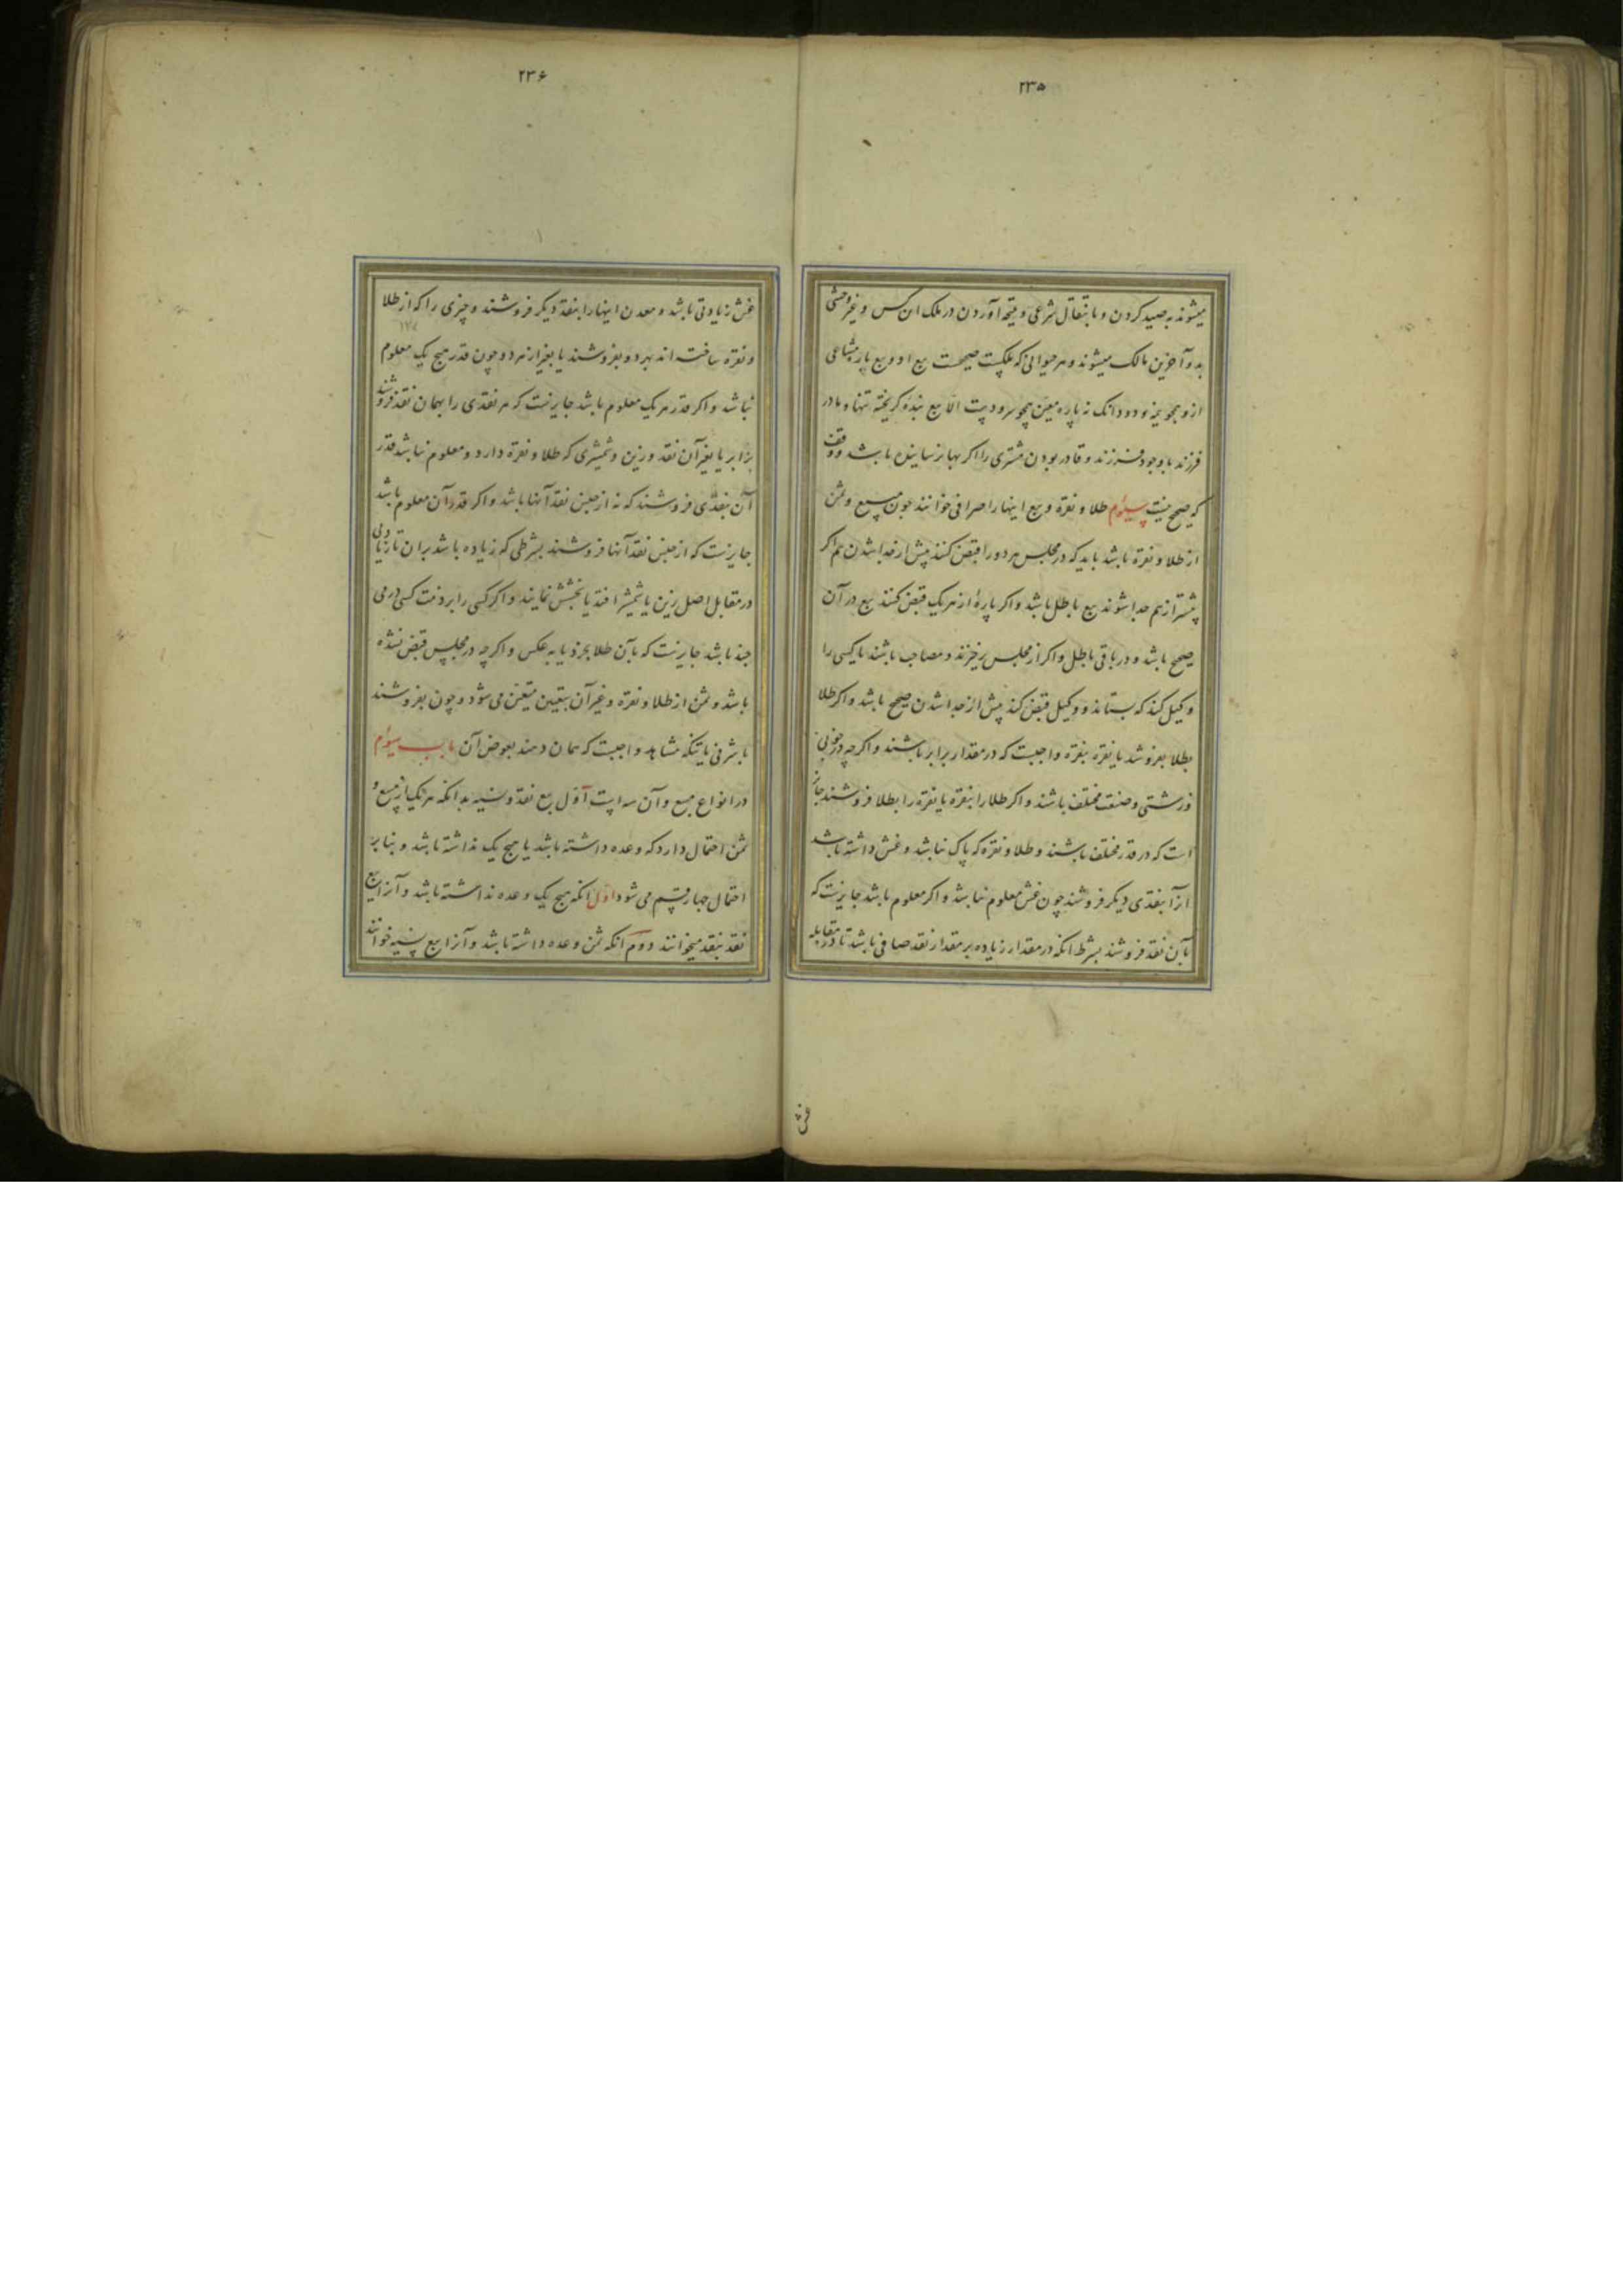 ۲۳۵
میشوند به صید کردن و بانتقال شرعی و نتیجه آوردن در ملک ان کس و غیر وحشی
بدو آخرین مالک میشوند و هر حیوانی که ملکیت صحیحست بیع او و بیع پاره مشاعی
ازو همچو نیمه و دو دانک نه پاره معین همچو سر و دست الا بیع بنده کریخته تنها و مادر
فرزند با وجود فرزند و قادر بودن مشتری را اکر بها نرسانیده باشد و وقف
که صحیح نیست سیوم طلا و نقره و بیع اینها را صرافی خوانند چون مبیع و ثمن
از طلا و نقره باشد باید که در مجلس هر دو را قبض کنند پیش از جدا شدن هم اکر
پیشتر از هم جدا شوند بیع باطل باشد و اکر پارهٔ از هر یک قبض کنند بیع در آن
صحیح باشد و در باقی باطل و اکر از مجلس برخیزند و مصاحب باشند تا کسی را
وکیل کند که بستاند و وکیل قبض کند پیش از جدا شدن صحیح باشد و اکر طلا
بطلا بفروشد یا نقره بنقره واجبست که در مقدار برابر باشند و اکرچه در خوبی
و زشتی و صنعت مختلف باشند و اکر طلا را بنقره یا نقره را بطلا فروشند جایز
است که در قدر مختلف باشند و طلا و نقره که پاک نباشد و غش داشته باشد
انرا بنقدی دیکر فروشند چون غش معلوم نباشد و اکر معلوم باشد جایزست که
بآن نقد فروشند بشرط انکه در مقدار زیاده بر مقدار نقد صافی باشد تا در مقابله
غش
۲۳۶
غش زیادتی باشد و معدن اینها را بنقد دیکر فروشند و چیزی را که از طلا
و نقره ساخته اند بهر دو بفروشند یا بغیر از هر دو چون قدر هیچ یک معلوم
نباشد و اکر قدر هر یک معلوم باشد جایزست که هر نقدی را بهمان نقد فروشند
برابر یا بغیر آن نقد و زین و شمشیری که طلا و نقره دارد و معلوم نباشد قدر
آن بنقدی فروشند که نه از جنس نقد آنها باشد و اکر قدر آن معلوم باشد
جایزست که از جنس نقد آنها فروشند بشرطی که زیاده باشد بران تا زیادتی
در مقابل اصل زین یا شمشیر افتد یا بخشش نمایند و اکر کسی را بر ذمت کسی درمی
چند باشد جایزست که بآن طلا بخرد یا به عکس و اکرچه در مجلس قبض نشده
باشد و ثمن از طلا و نقره و غیر آن بتعیین متعین می شود و چون بفروشند
باشرفی یا تنکه مشاهد واجبست که همان دهند بعوض آن باب سیوم
در انواع مبیع و آن سه است اول بیع نقد و نسیه بدانکه هر یک از مبیع و
ثمن احتمال دارد که وعده داشته باشد یا هیچ یک نداشته باشد و بنابر
احتمال چهار قسم می شود اول انکه هیچ یک وعده نداشته باشد و آنرا بیع
نقد بنقد میخوانند دوم انکه ثمن وعده داشته باشد و آنرا بیع نسیه خوانند